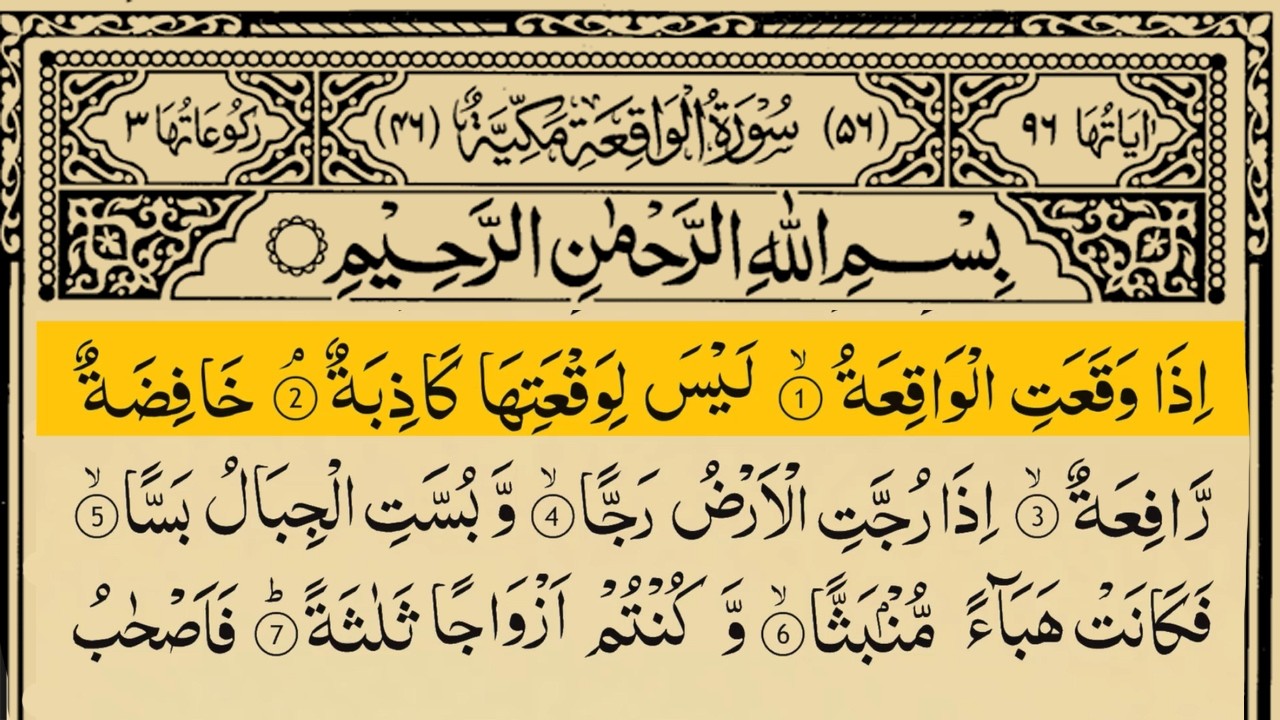 اٰيَاتُهَا ٩٦
(٥٦) سُوْرَةُ الْوَاقِعَةِ مَكِّيَّةٌ (٤٦)
رُكُوْعَاتُهَا ٣
بِسْمِ اللّٰهِ الرَّحْمٰنِ الرَّحِيْمِ
اِذَا وَقَعَتِ الْوَاقِعَةُ ۙ1 لَيْسَ لِوَقْعَتِهَا كَاذِبَةٌ ۘ2 خَافِضَةٌ
رَّافِعَةٌ ۙ3 اِذَا رُجَّتِ الْاَرْضُ رَجًّا ۙ4 وَّ بُسَّتِ الْجِبَالُ بَسًّا ۙ5
فَكَانَتْ هَبَآءً مُّنْۢبَثًّا ۙ6 وَّ كُنْتُمْ اَزْوَاجًا ثَلٰثَةً ؕ7 فَاَصْحٰبُ